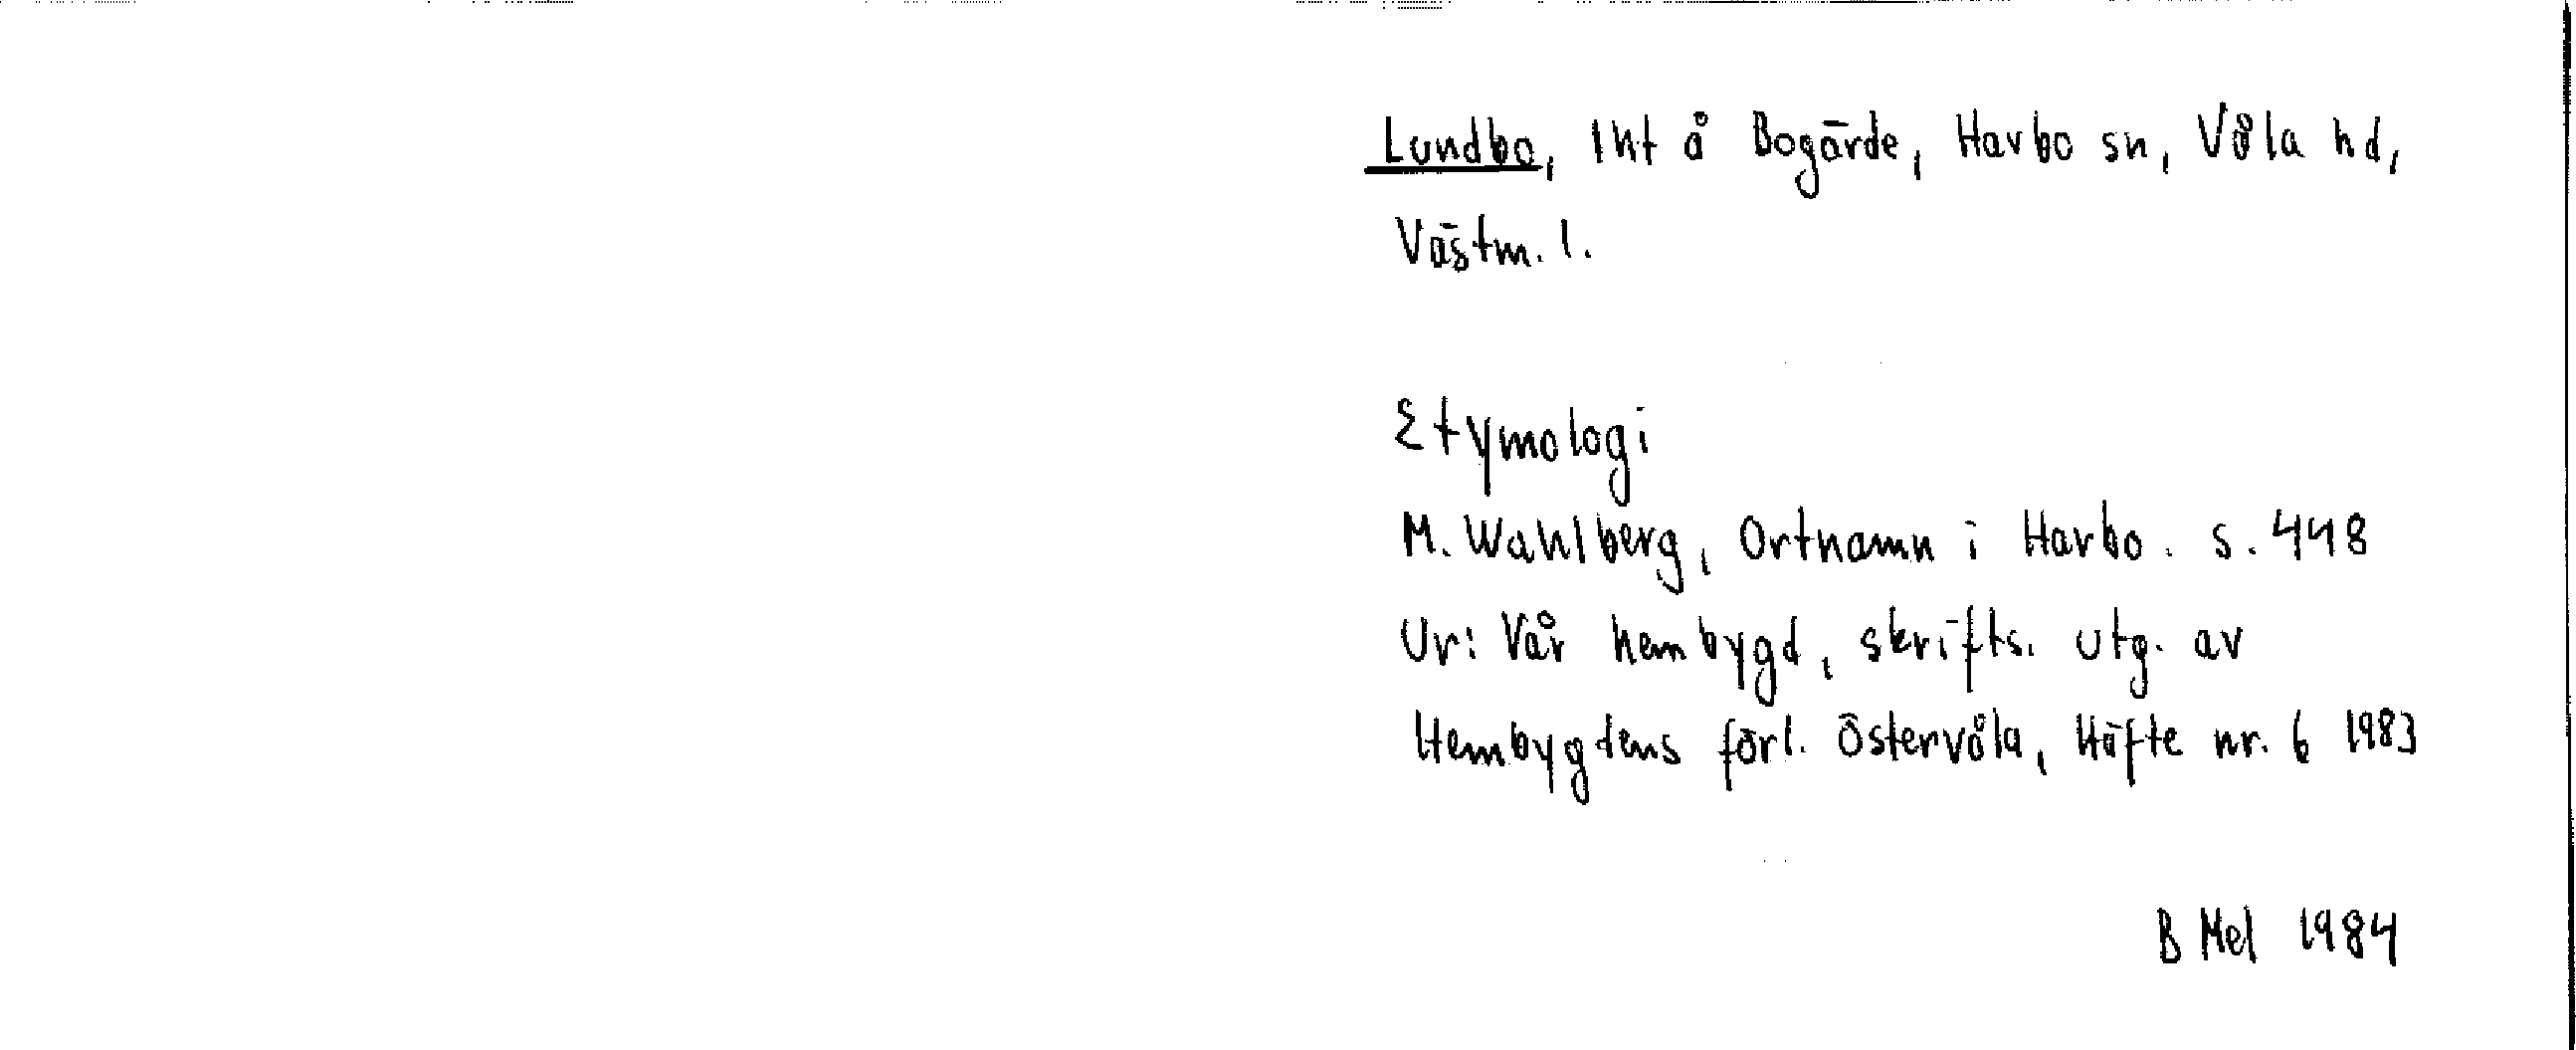 Lundbo, lht å Bogärde, Harbo sn, Våla hd,
Västm. l.
Etymologi
M. Wahlberg, Ortnamn i Harbo. s. 448
Ur: Vår hembygd, skrifts. utg. av
Hembygdens förl. Östervåla, Häfte nr. 6 1983
B Mel 1984